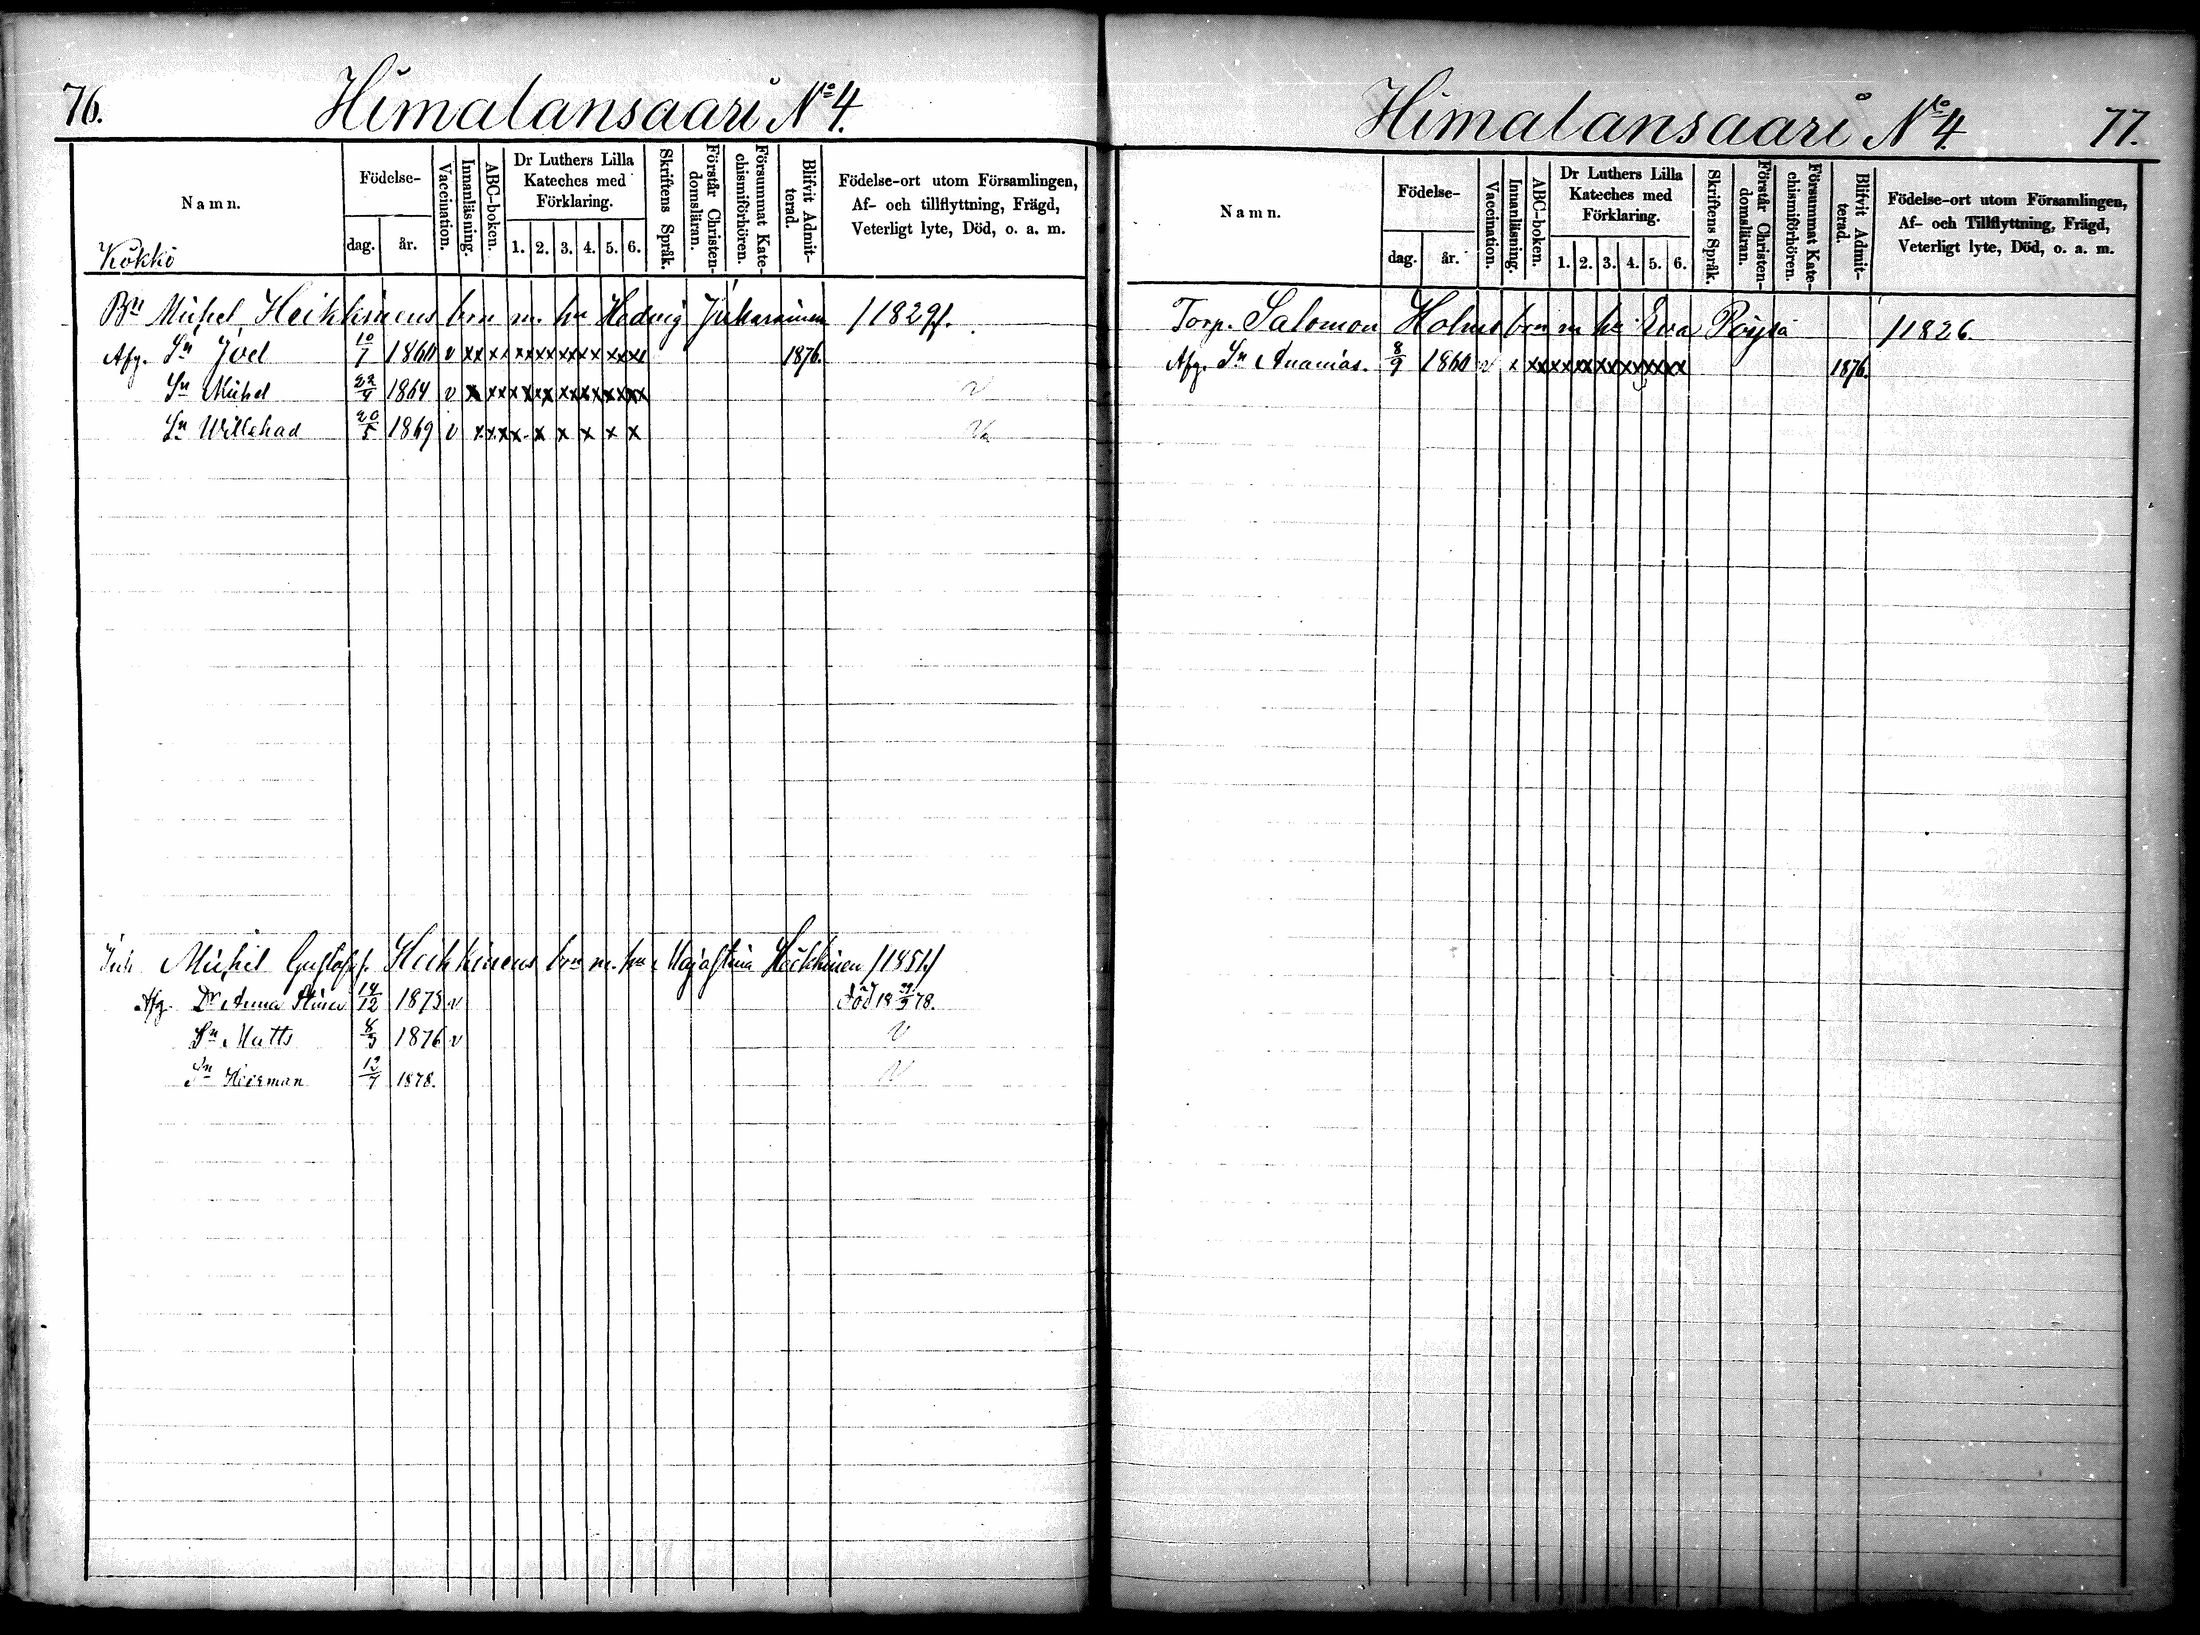 76.
Himalansaari № 4.
Namn.
Födelse-
dag.
år.
Vaccination.
Innanläsning.
ABC-boken.
Dr Luthers Lilla
Kateches med
Förklaring.
1. 2. 3. 4. 5. 6.
Skriftens Språk.
Förstår Christen-
domsläran.
Försummat Kate-
chismiförhören.
Blifvit Admit-
terad.
Födelse-ort utom Församlingen,
Af- och tillflyttning, Frägd,
Veterligt lyte, Död, o. a. m.
Kokko
Bn Michel Heikkinens brn m. hu Hedvig Juhanainen /1829/.
Afg. Sn Joel 10/7 1860 v xx xx xxxxxxxx xxxx 1876.
Sn Michel 22/4 1864 v x xxxxxx xxxxxxx v
Sn Willehad 20/5 1869 v xxxx x x x x x
Michel Gustafss. Heikkinens brn m. hu Maja Stina Heikkinen /1851/
Afg. Dr Anna Stina 14/12 1873 v död 18 78.
Sn Matts 8/3 1876 v v
Sn Herman 12/7 1878. v
Himalansaari № 4.
77.
Namn.
Födelse-
dag.
år.
Vaccination.
Innanläsning.
ABC-boken.
Dr Luthers Lilla
Kateches med
Förklaring.
1. 2. 3. 4. 5. 6.
Skriftens Språk.
Förstår Christen-
domsläran.
Försummat Kate-
chismiförhören.
Blifvit Admit-
terad.
Födelse-ort utom Församlingen,
Af- och Tillflyttning, Frägd,
Veterligt lyte, Död, o. a. m.
Torp. Salomon Holms brn m hu Eva Pöysä /1826.
Afg. Sn Ananias. 8/9 1860 v x xxxxxxxxxxxxx 1876.